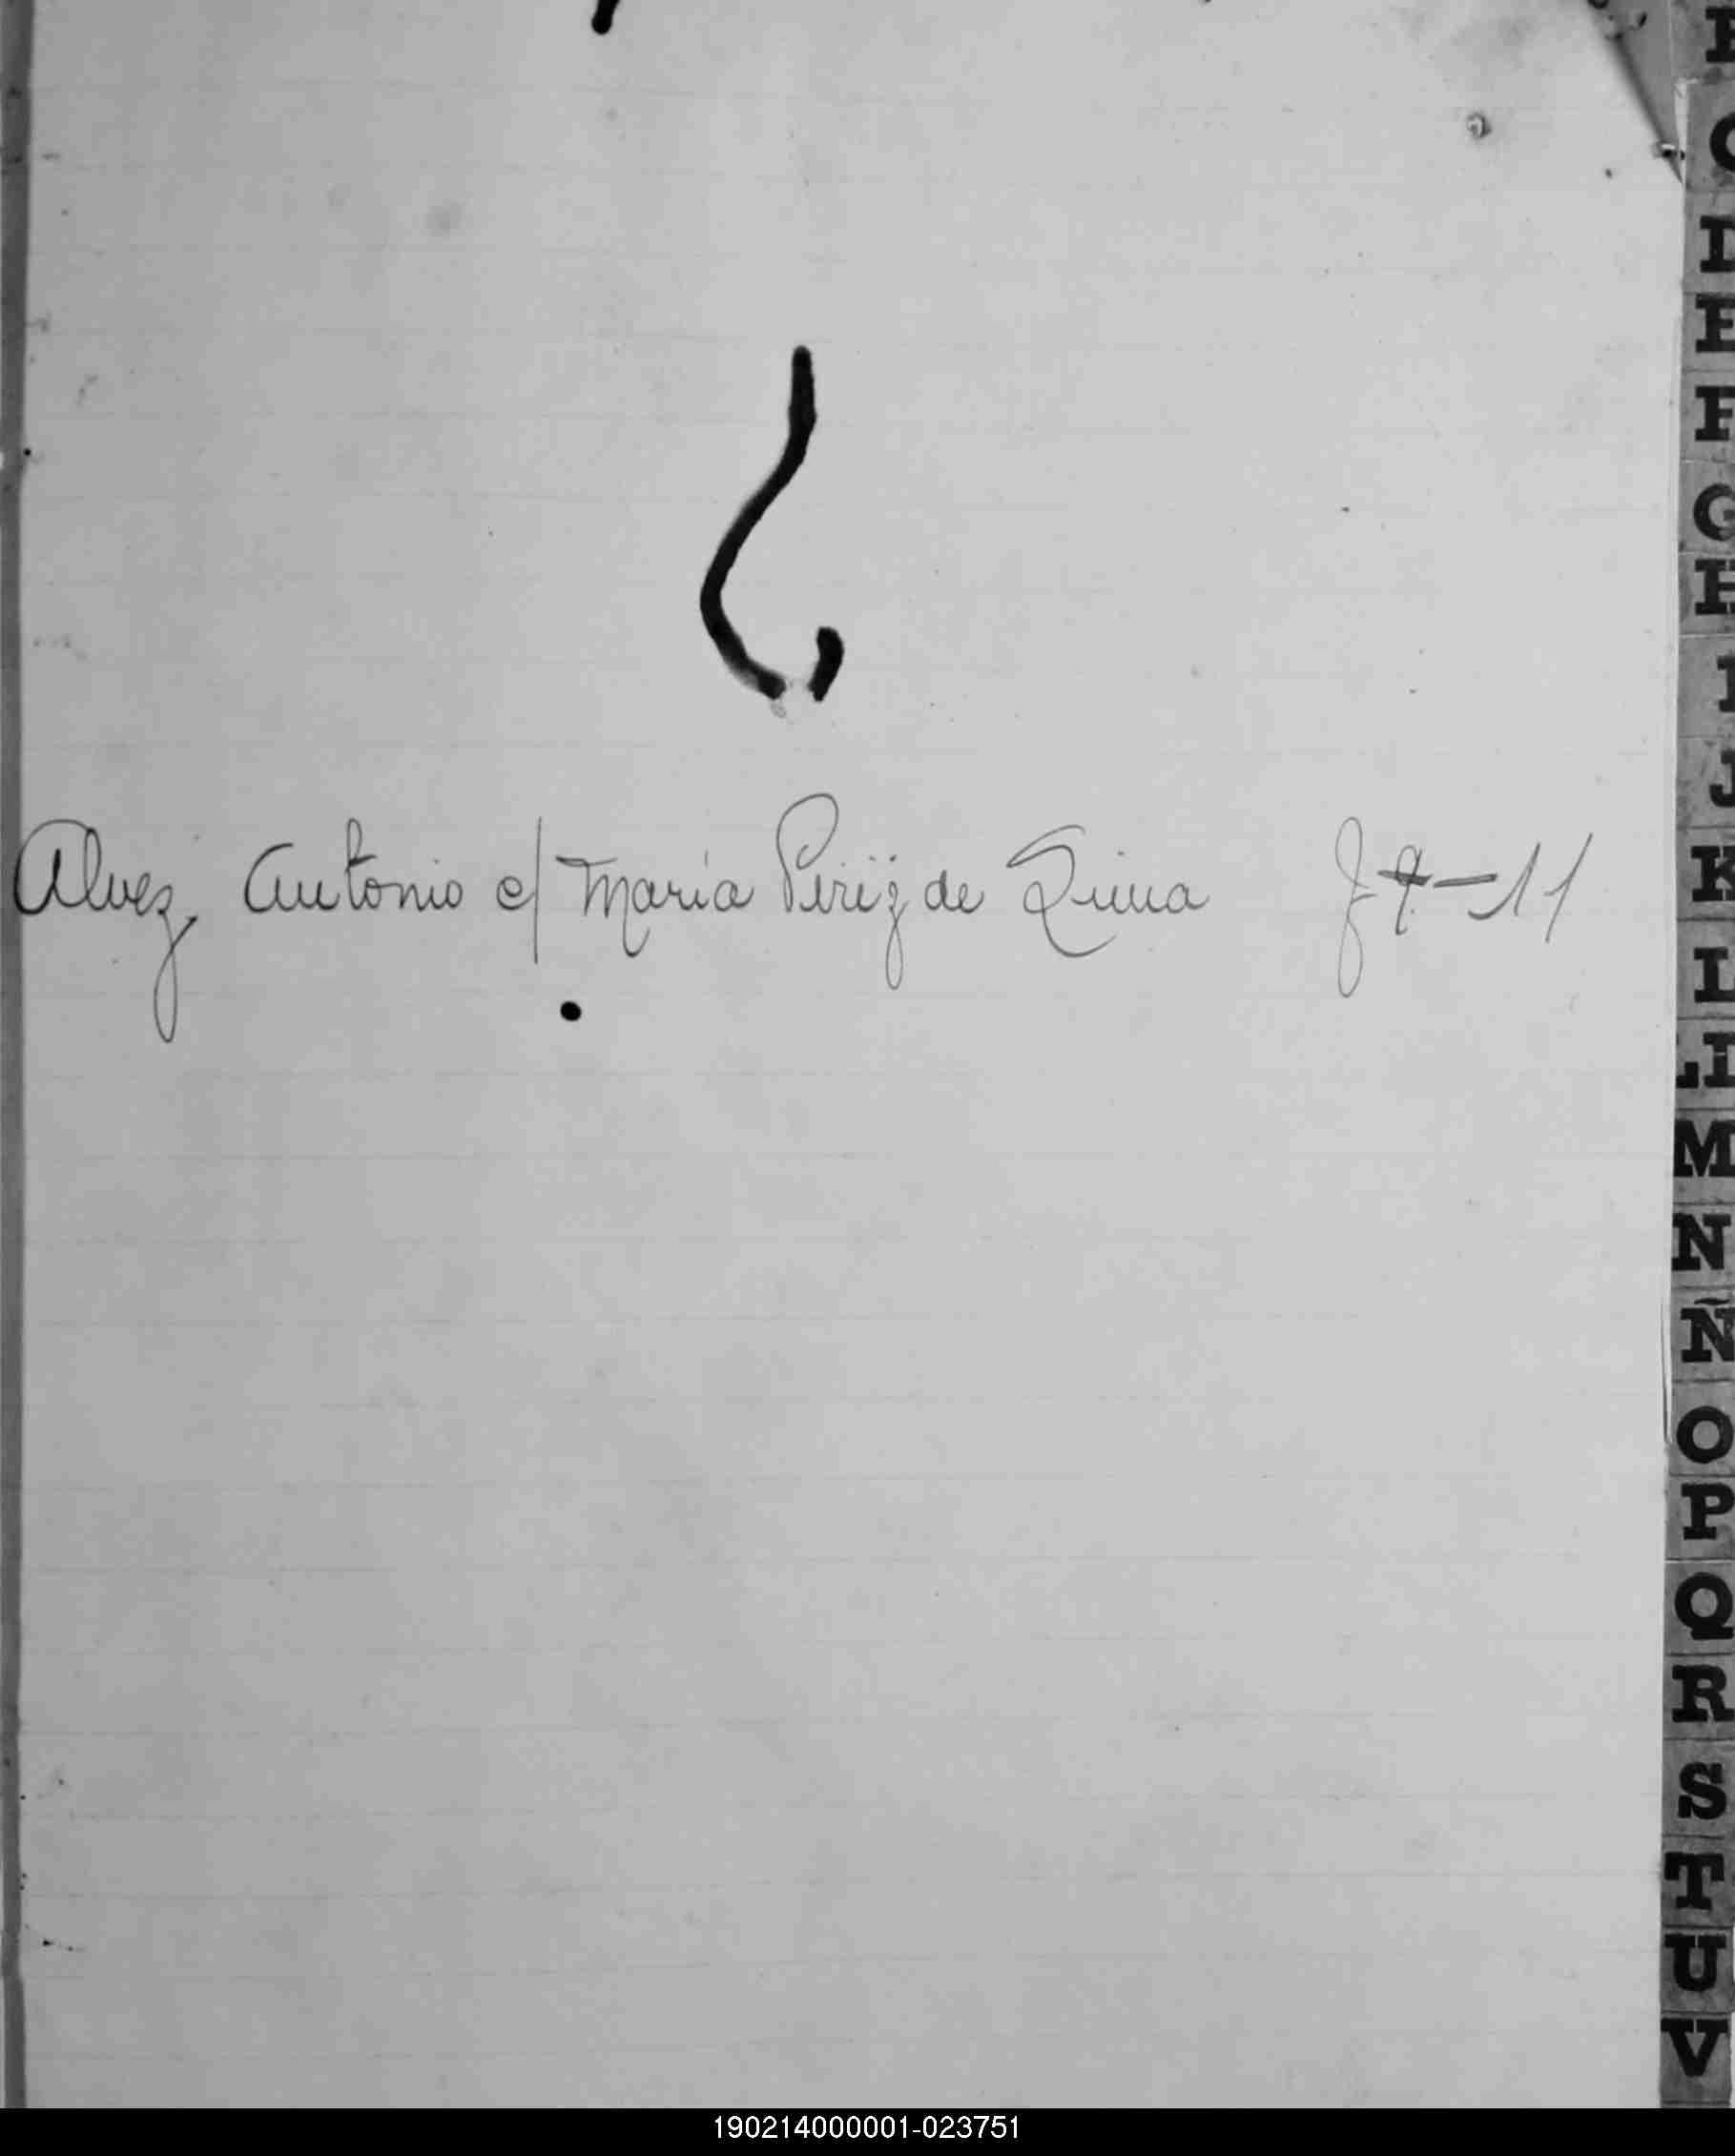 Alvez, Antonio c/ Maria Periz de Lima J 7-11
E
F
H
J
K
L
LL
M
N
Ñ
O
P
Q
R
S
T
U
V
190214000001-023751